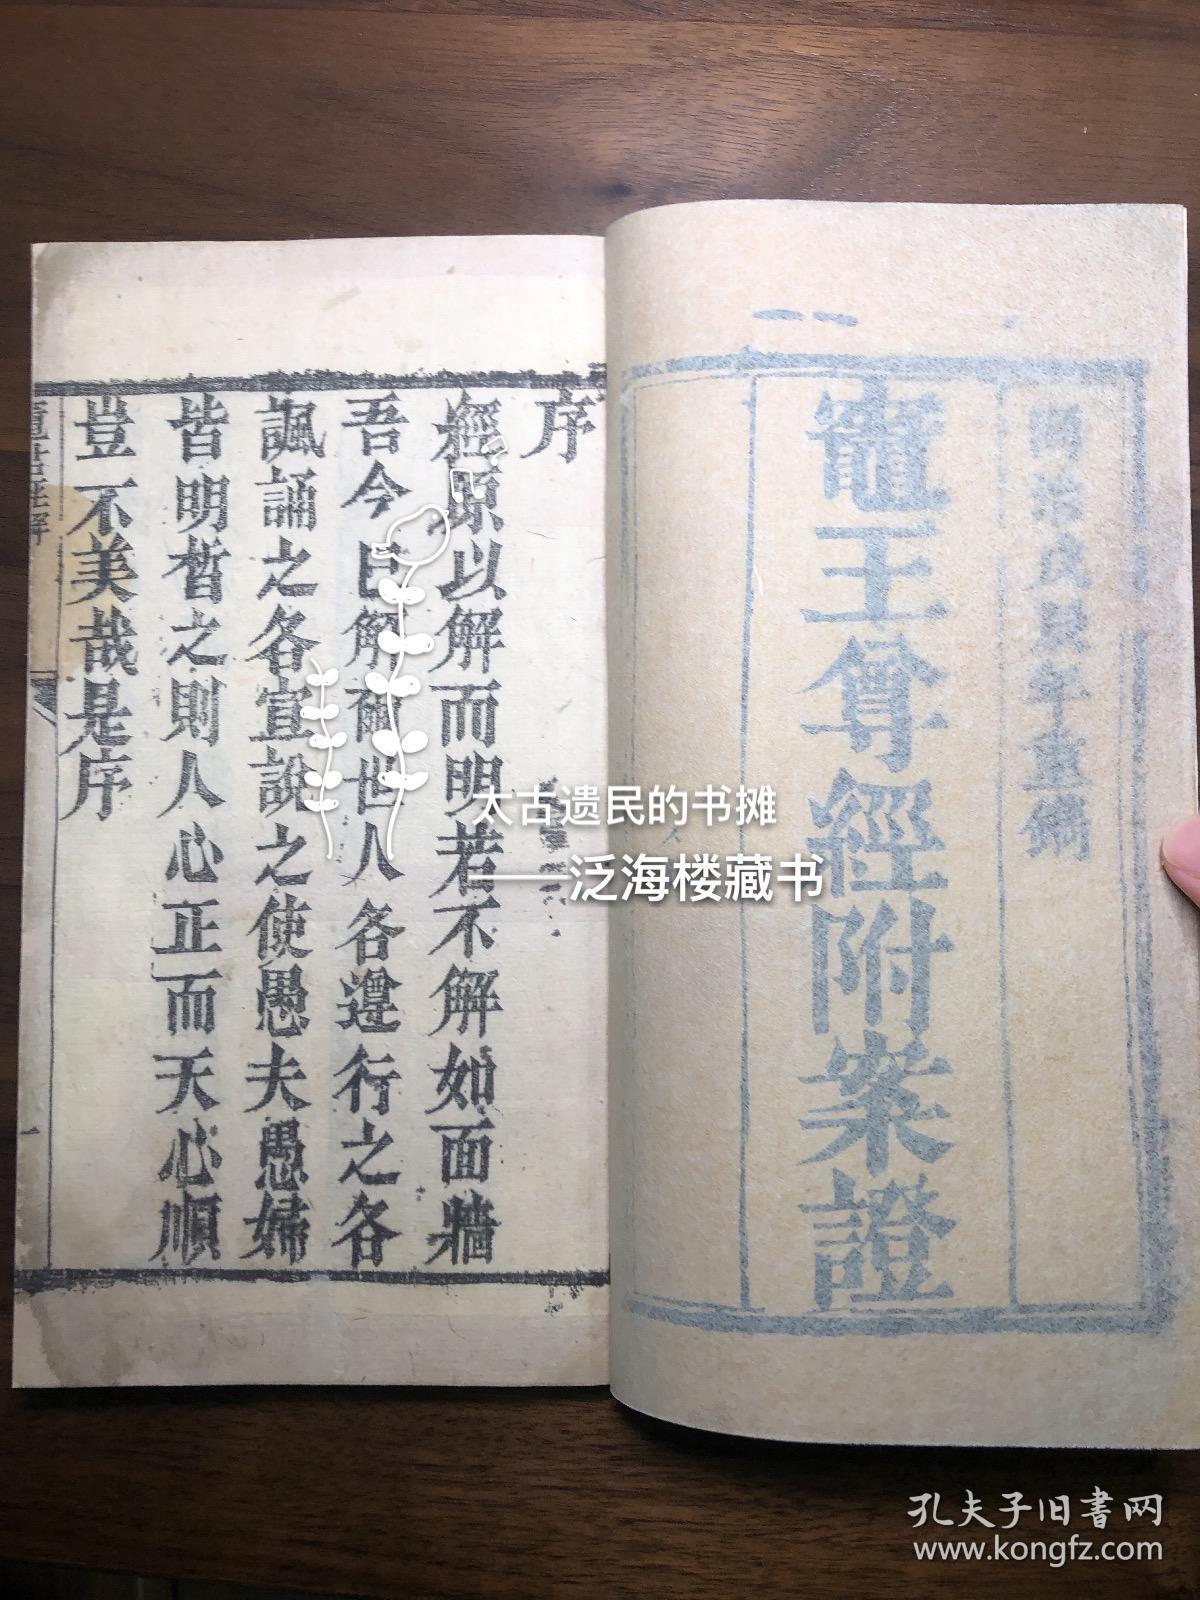 同治戊辰年重鐫
竈王尊經附案證
序
經原以解而明若不解如面牆
吾今已解爾世人各遵行之各
諷誦之各宣說之使愚夫愚婦
皆明晳之則人心正而天心順
豈不美哉是序
一
太古遗民的书摊
——泛海楼藏书
孔夫子旧書网
www.kongfz.com